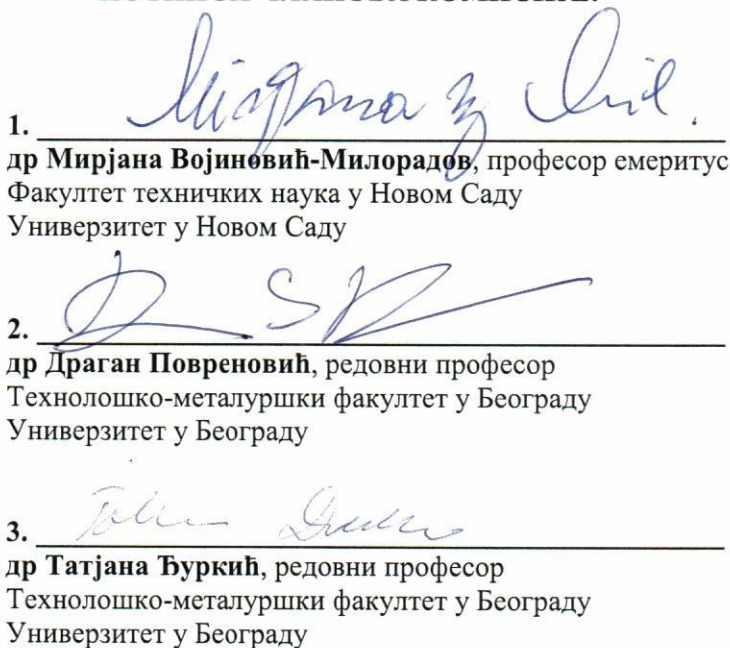 1.
др Мирјана Војиновић-Милорадов, професор емеритус
Факултет техничких наука у Новом Саду
Универзитет у Новом Саду
2.
др Драган Повреновић, редовни професор
Технолошко-металуршки факултет у Београду
Универзитет у Београду
3.
др Татјана Ђуркић, редовни професор
Технолошко-металуршки факултет у Београду
Универзитет у Београду